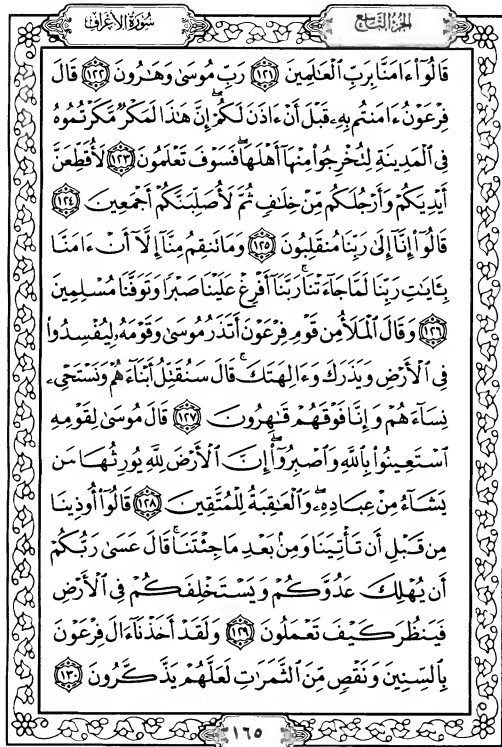 سُورَةُ الْأَعْرَافِ
الجُزْءُ التَّاسِعُ
قَالُوٓا۟ ءَامَنَّا بِرَبِّ ٱلْعَٰلَمِينَ ﴿١٢١﴾ رَبِّ مُوسَىٰ وَهَٰرُونَ ﴿١٢٢﴾ قَالَ
فِرْعَوْنُ ءَامَنتُم بِهِۦ قَبْلَ أَنْ ءَاذَنَ لَكُمْ ۖ إِنَّ هَٰذَا لَمَكْرٌ مَّكَرْتُمُوهُ
فِى ٱلْمَدِينَةِ لِتُخْرِجُوا۟ مِنْهَآ أَهْلَهَا ۖ فَسَوْفَ تَعْلَمُونَ ﴿١٢٣﴾ لَأُقَطِّعَنَّ
أَيْدِيَكُمْ وَأَرْجُلَكُم مِّنْ خِلَٰفٍ ثُمَّ لَأُصَلِّبَنَّكُمْ أَجْمَعِينَ ﴿١٢٤﴾
قَالُوٓا۟ إِنَّآ إِلَىٰ رَبِّنَا مُنقَلِبُونَ ﴿١٢٥﴾ وَمَا تَنقِمُ مِنَّآ إِلَّآ أَنْ ءَامَنَّا
بِـَٔايَٰتِ رَبِّنَا لَمَّا جَآءَتْنَا ۚ رَبَّنَآ أَفْرِغْ عَلَيْنَا صَبْرًا وَتَوَفَّنَا مُسْلِمِينَ
﴿١٢٦﴾ وَقَالَ ٱلْمَلَأُ مِن قَوْمِ فِرْعَوْنَ أَتَذَرُ مُوسَىٰ وَقَوْمَهُۥ لِيُفْسِدُوا۟
فِى ٱلْأَرْضِ وَيَذَرَكَ وَءَالِهَتَكَ ۚ قَالَ سَنُقَتِّلُ أَبْنَآءَهُمْ وَنَسْتَحْىِۦ
نِسَآءَهُمْ وَإِنَّا فَوْقَهُمْ قَٰهِرُونَ ﴿١٢٧﴾ قَالَ مُوسَىٰ لِقَوْمِهِ
ٱسْتَعِينُوا۟ بِٱللَّهِ وَٱصْبِرُوٓا۟ ۖ إِنَّ ٱلْأَرْضَ لِلَّهِ يُورِثُهَا مَن
يَشَآءُ مِنْ عِبَادِهِۦ ۖ وَٱلْعَٰقِبَةُ لِلْمُتَّقِينَ ﴿١٢٨﴾ قَالُوٓا۟ أُوذِينَا
مِن قَبْلِ أَن تَأْتِيَنَا وَمِنۢ بَعْدِ مَا جِئْتَنَا ۚ قَالَ عَسَىٰ رَبُّكُمْ
أَن يُهْلِكَ عَدُوَّكُمْ وَيَسْتَخْلِفَكُمْ فِى ٱلْأَرْضِ
فَيَنظُرَ كَيْفَ تَعْمَلُونَ ﴿١٢٩﴾ وَلَقَدْ أَخَذْنَآ ءَالَ فِرْعَوْنَ
بِٱلسِّنِينَ وَنَقْصٍ مِّنَ ٱلثَّمَرَٰتِ لَعَلَّهُمْ يَذَّكَّرُونَ ﴿١٣٠﴾
١٦٥